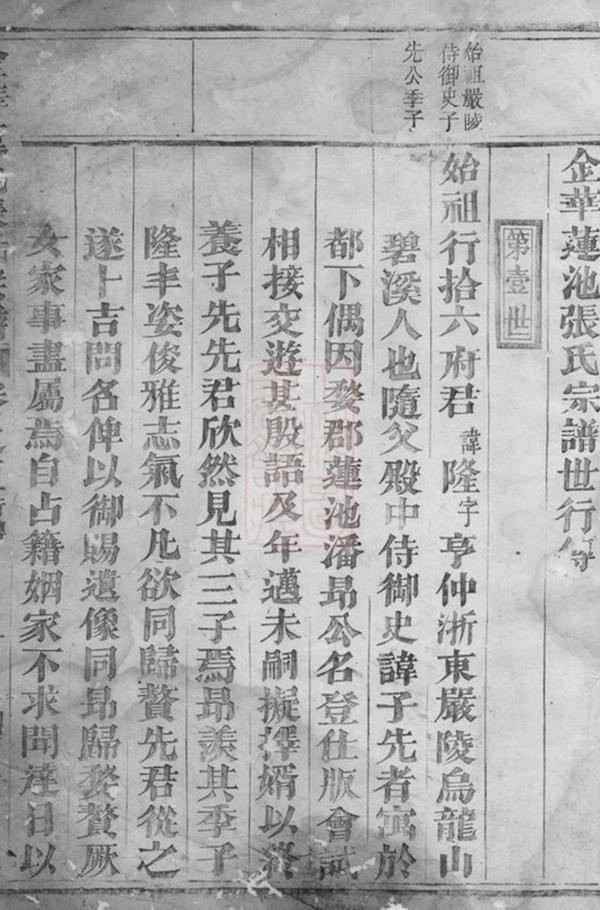 金華蓮池張氏宗譜世行傳
第壹世
始祖嚴陵
侍御史子
先公季子
始祖行拾六府君諱隆字亨仲浙東嚴陵烏龍山
碧溪人也隨父殿中侍御史諱子先者寓於
都下偶因婺郡蓮池潘昂公名登仕版會試
相接交遊甚殷語及年邁未嗣擬擇婿以終
養子先先君欣然見其三子焉昂羨其季子
隆丰姿俊雅志氣不凡欲同歸贅先君從之
遂卜吉問名俾以御賜遺像同昂歸婺贅厥
女家事盡屬焉自占籍姻家不求聞達日以